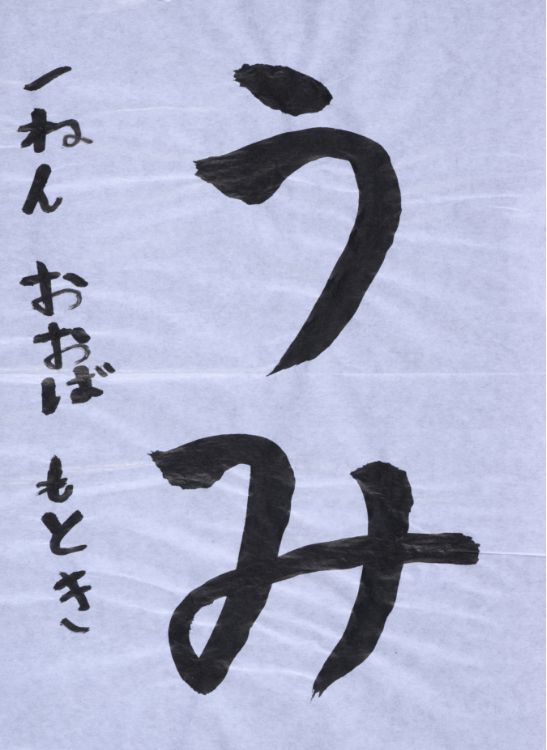 うみ
一ねん おおば もとき